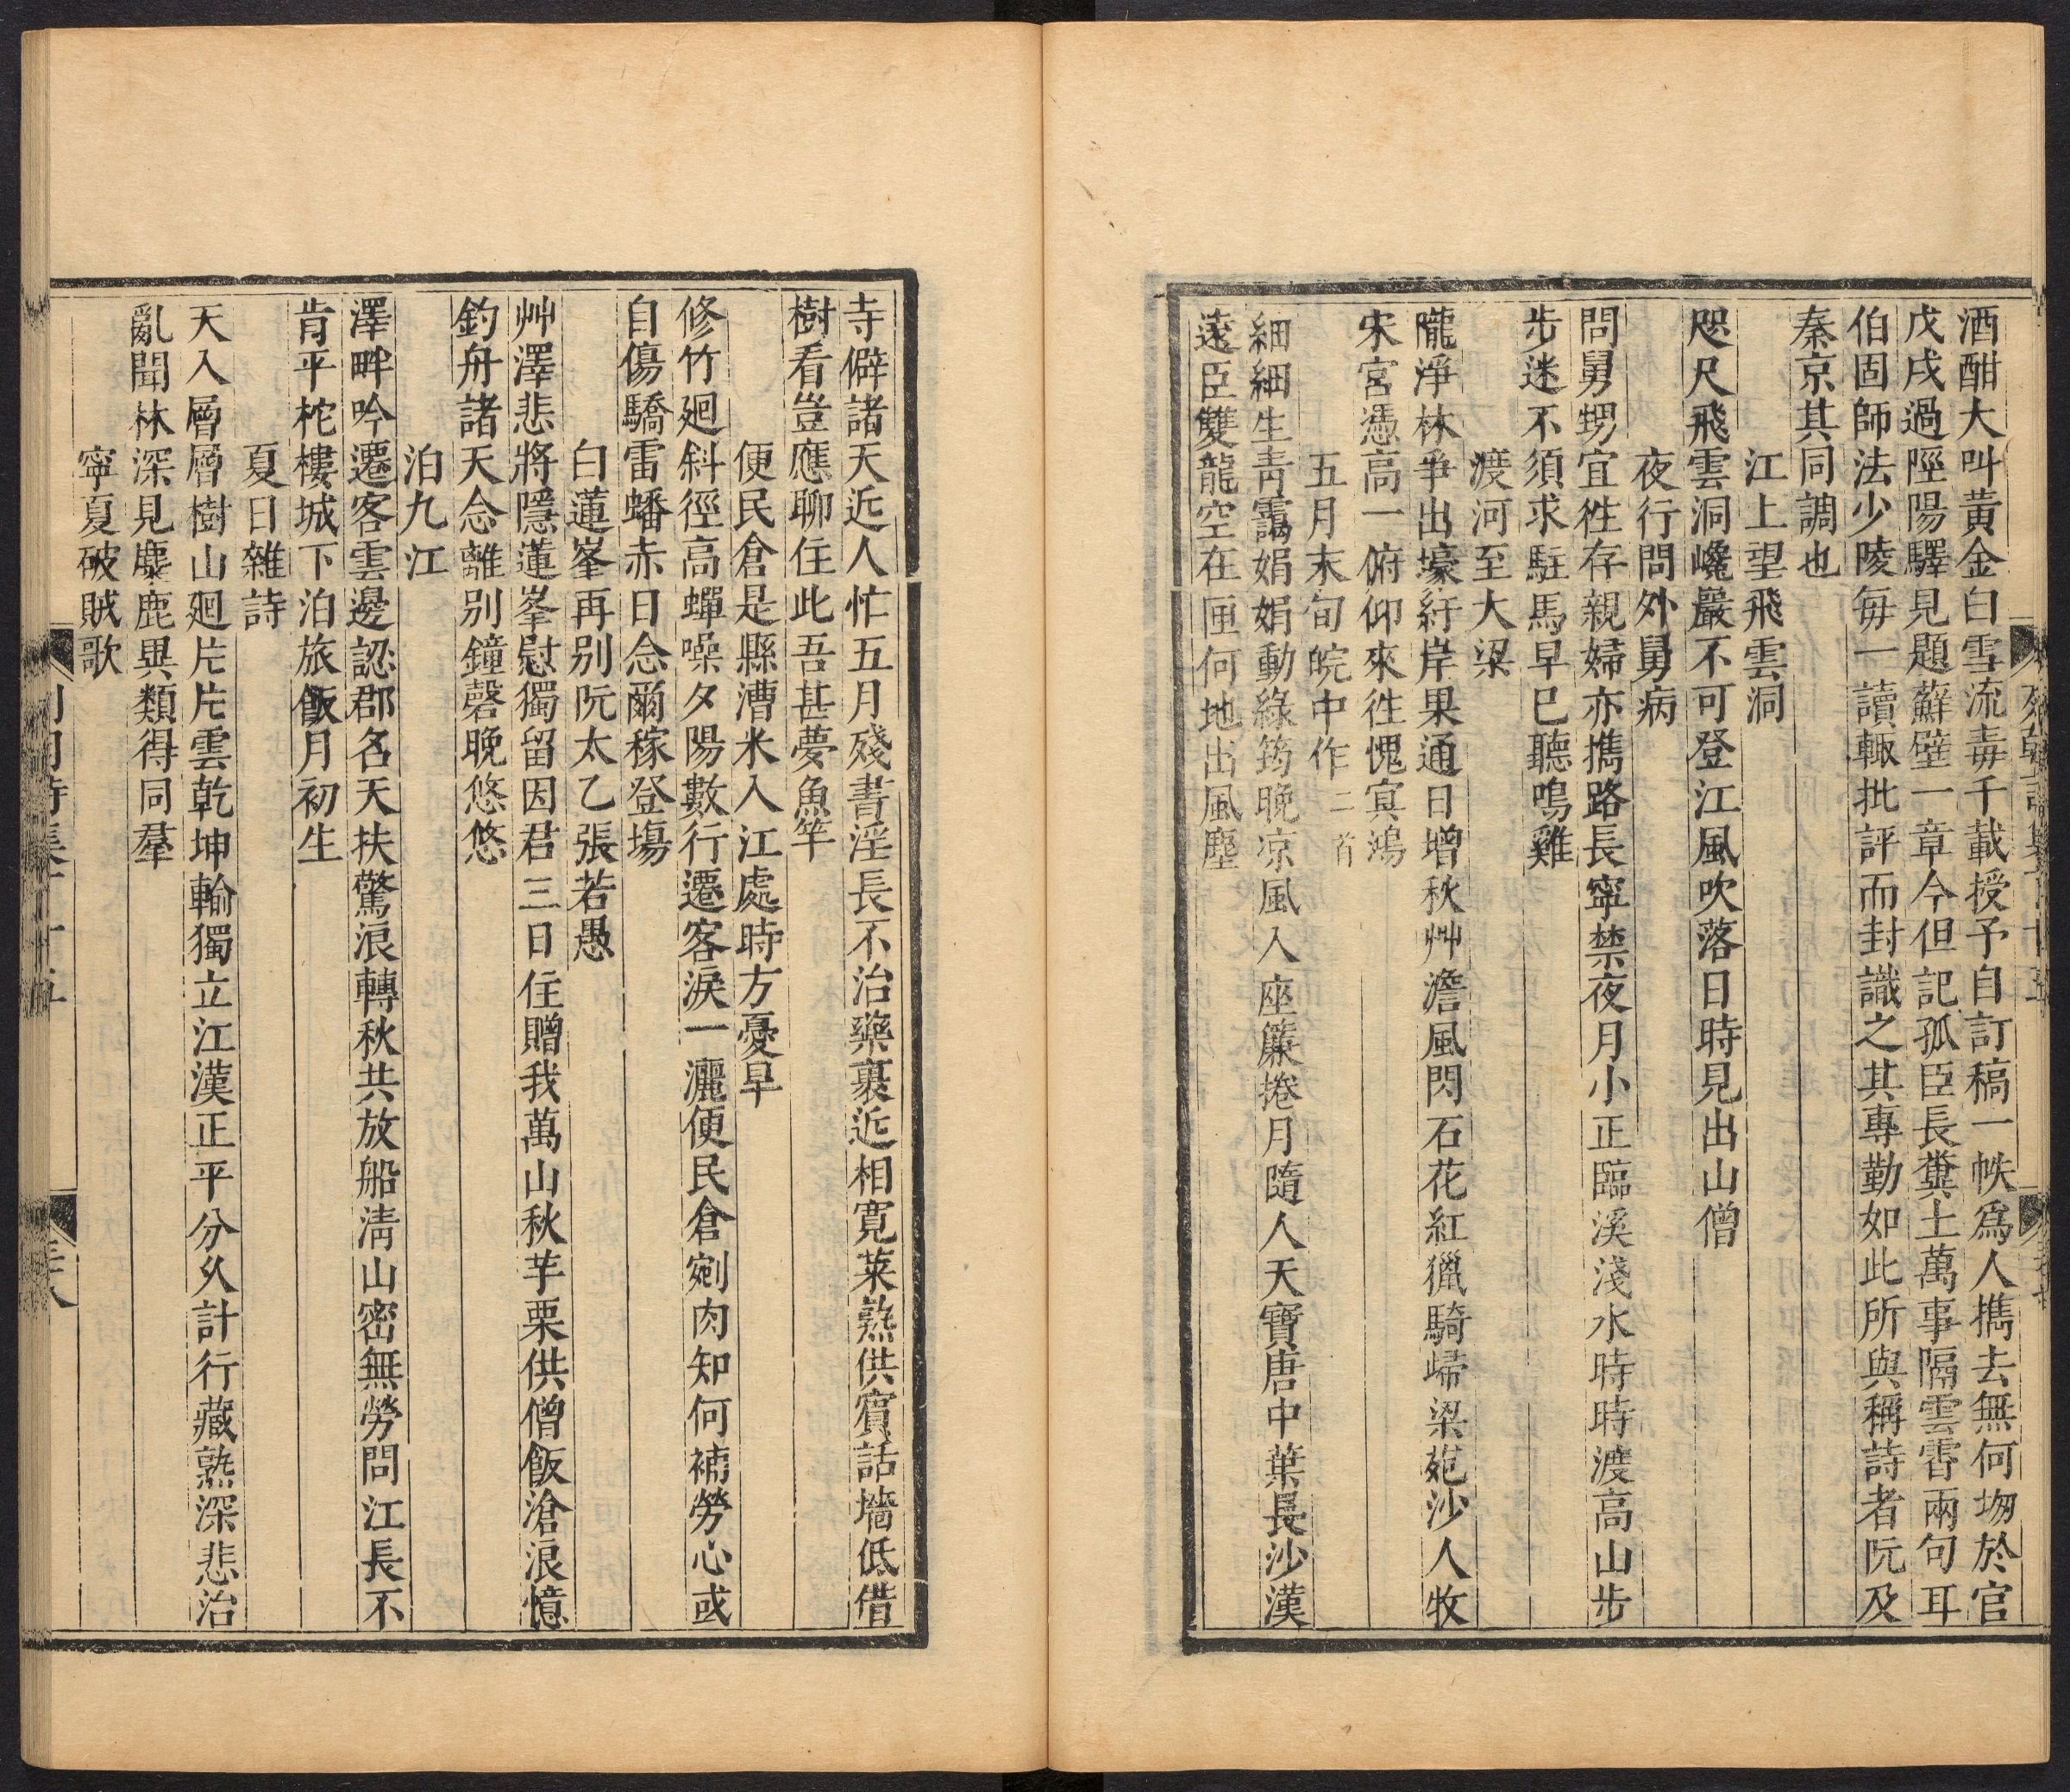 酒酣大叫黃金白雪流毒千載授予自訂稿一帙爲人攜去無何坳於官
戊戌過陘陽驛見題蘇壁一章今但記孤臣長糞土萬事隔雲霄兩句耳
伯固師法少陵每一讀輙批評而封識之其專勤如此所與稱詩者阮及
秦京其同調也
江上望飛雲洞
咫尺飛雲洞巉巖不可登江風吹落日時見出山僧
夜行問外舅病
問舅甥宜徃存親婦亦攜路長寧禁夜月小正臨溪淺水時時渡高山步
步迷不須求駐馬早已聽鳴雞
渡河至大梁
隴淨林爭出壕紆岸果通日增秋艸澹風閃石花紅獵騎歸梁苑沙人牧
宋宮憑高一俯仰來徃愧㝠鴻
五月末旬皖中作二首
細細生靑靄娟娟動綠筠晚凉風入座簾捲月隨人天寶唐中葉長沙漢
遠臣雙龍空在匣何地出風塵
寺僻諸天近人忙五月殘書淫長不治藥裹近相寛菜熟供賓話墻低借
樹看豈應聊住此吾甚夢魚竿
便民倉是縣漕米入江處時方憂旱
修竹廻斜徑高蟬噪夕陽數行遷客淚一灑便民倉剜肉知何補勞心或
自傷驕雷蟠赤日念爾稼登塲
白蓮峯再别阮太乙張若愚
艸澤悲將隱蓮峯慰獨留因君三日住贈我萬山秋芋栗供僧飯滄浪憶
釣舟諸天念離别鐘磬晚悠悠
泊九江
澤畔吟遷客雲邊認郡名天扶驚浪轉秋共放船淸山密無勞問江長不
肯平柁樓城下泊旅飯月初生
夏日雜詩
天入層層樹山廻片片雲乾坤輸獨立江漢正平分乆計行藏熟深悲治
亂聞林深見麋鹿異類得同羣
寧夏破賊歌